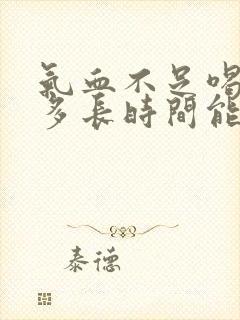 氣血不足喝
多長時間能
泰德